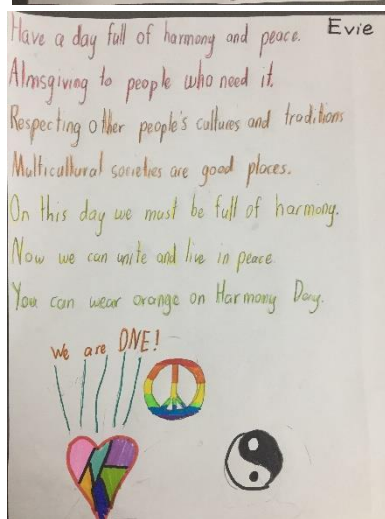 Evie
Have a day full of harmony and peace.
Almsgiving to people who need it.
Respecting other people's cultures and traditions
Multicultural societies are good places.
On this day we must be full of harmony.
Now we can unite and live in peace
You can wear orange on Harmony Day.
We are ONE!